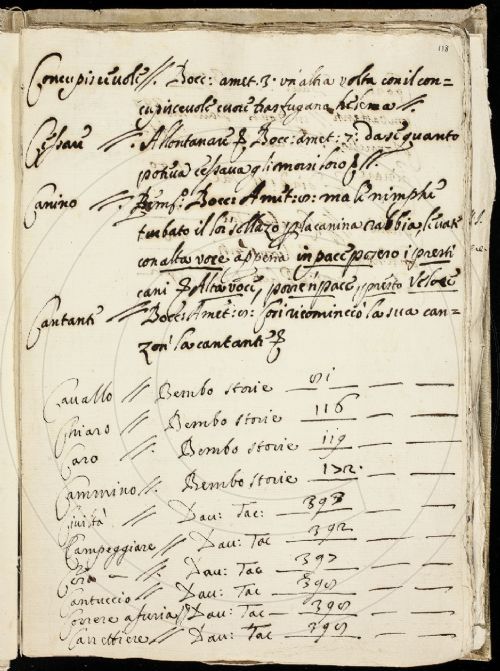 118
Concupiscevole //. Bocc: amet. 3. un'altra volta con il con=
cupiscevole cuore trasfugana Helena //.
Cessare //. Allontanare Bocc: amet: 7: da se quanto
poteva cessava gli morsi loro //.
Canino //. Bocc: Amet: ma le nimphe
turbato il lor sollazo p la canina rabbia levate
con alta voce appena in pace posero i presti
cani alta voce, porre in pace, presto Veloce
Cantante // Bocc: Amet: ricominciò la sua can=
zon la cantante
Cavallo // Bembo storie 81
Chiaro // Bembo storie 116
Caro // Bembo storie 119
Cammino //. Bembo storie
Civiltà // Dav: Tac: 393
Campeggiare // Dav: Tac 392
Dav: Tac 397
Cantuccio //. Dav: Tac 398
Correre a furia // Dav: Tac 398
Carrettiere // Dav: Tac 398